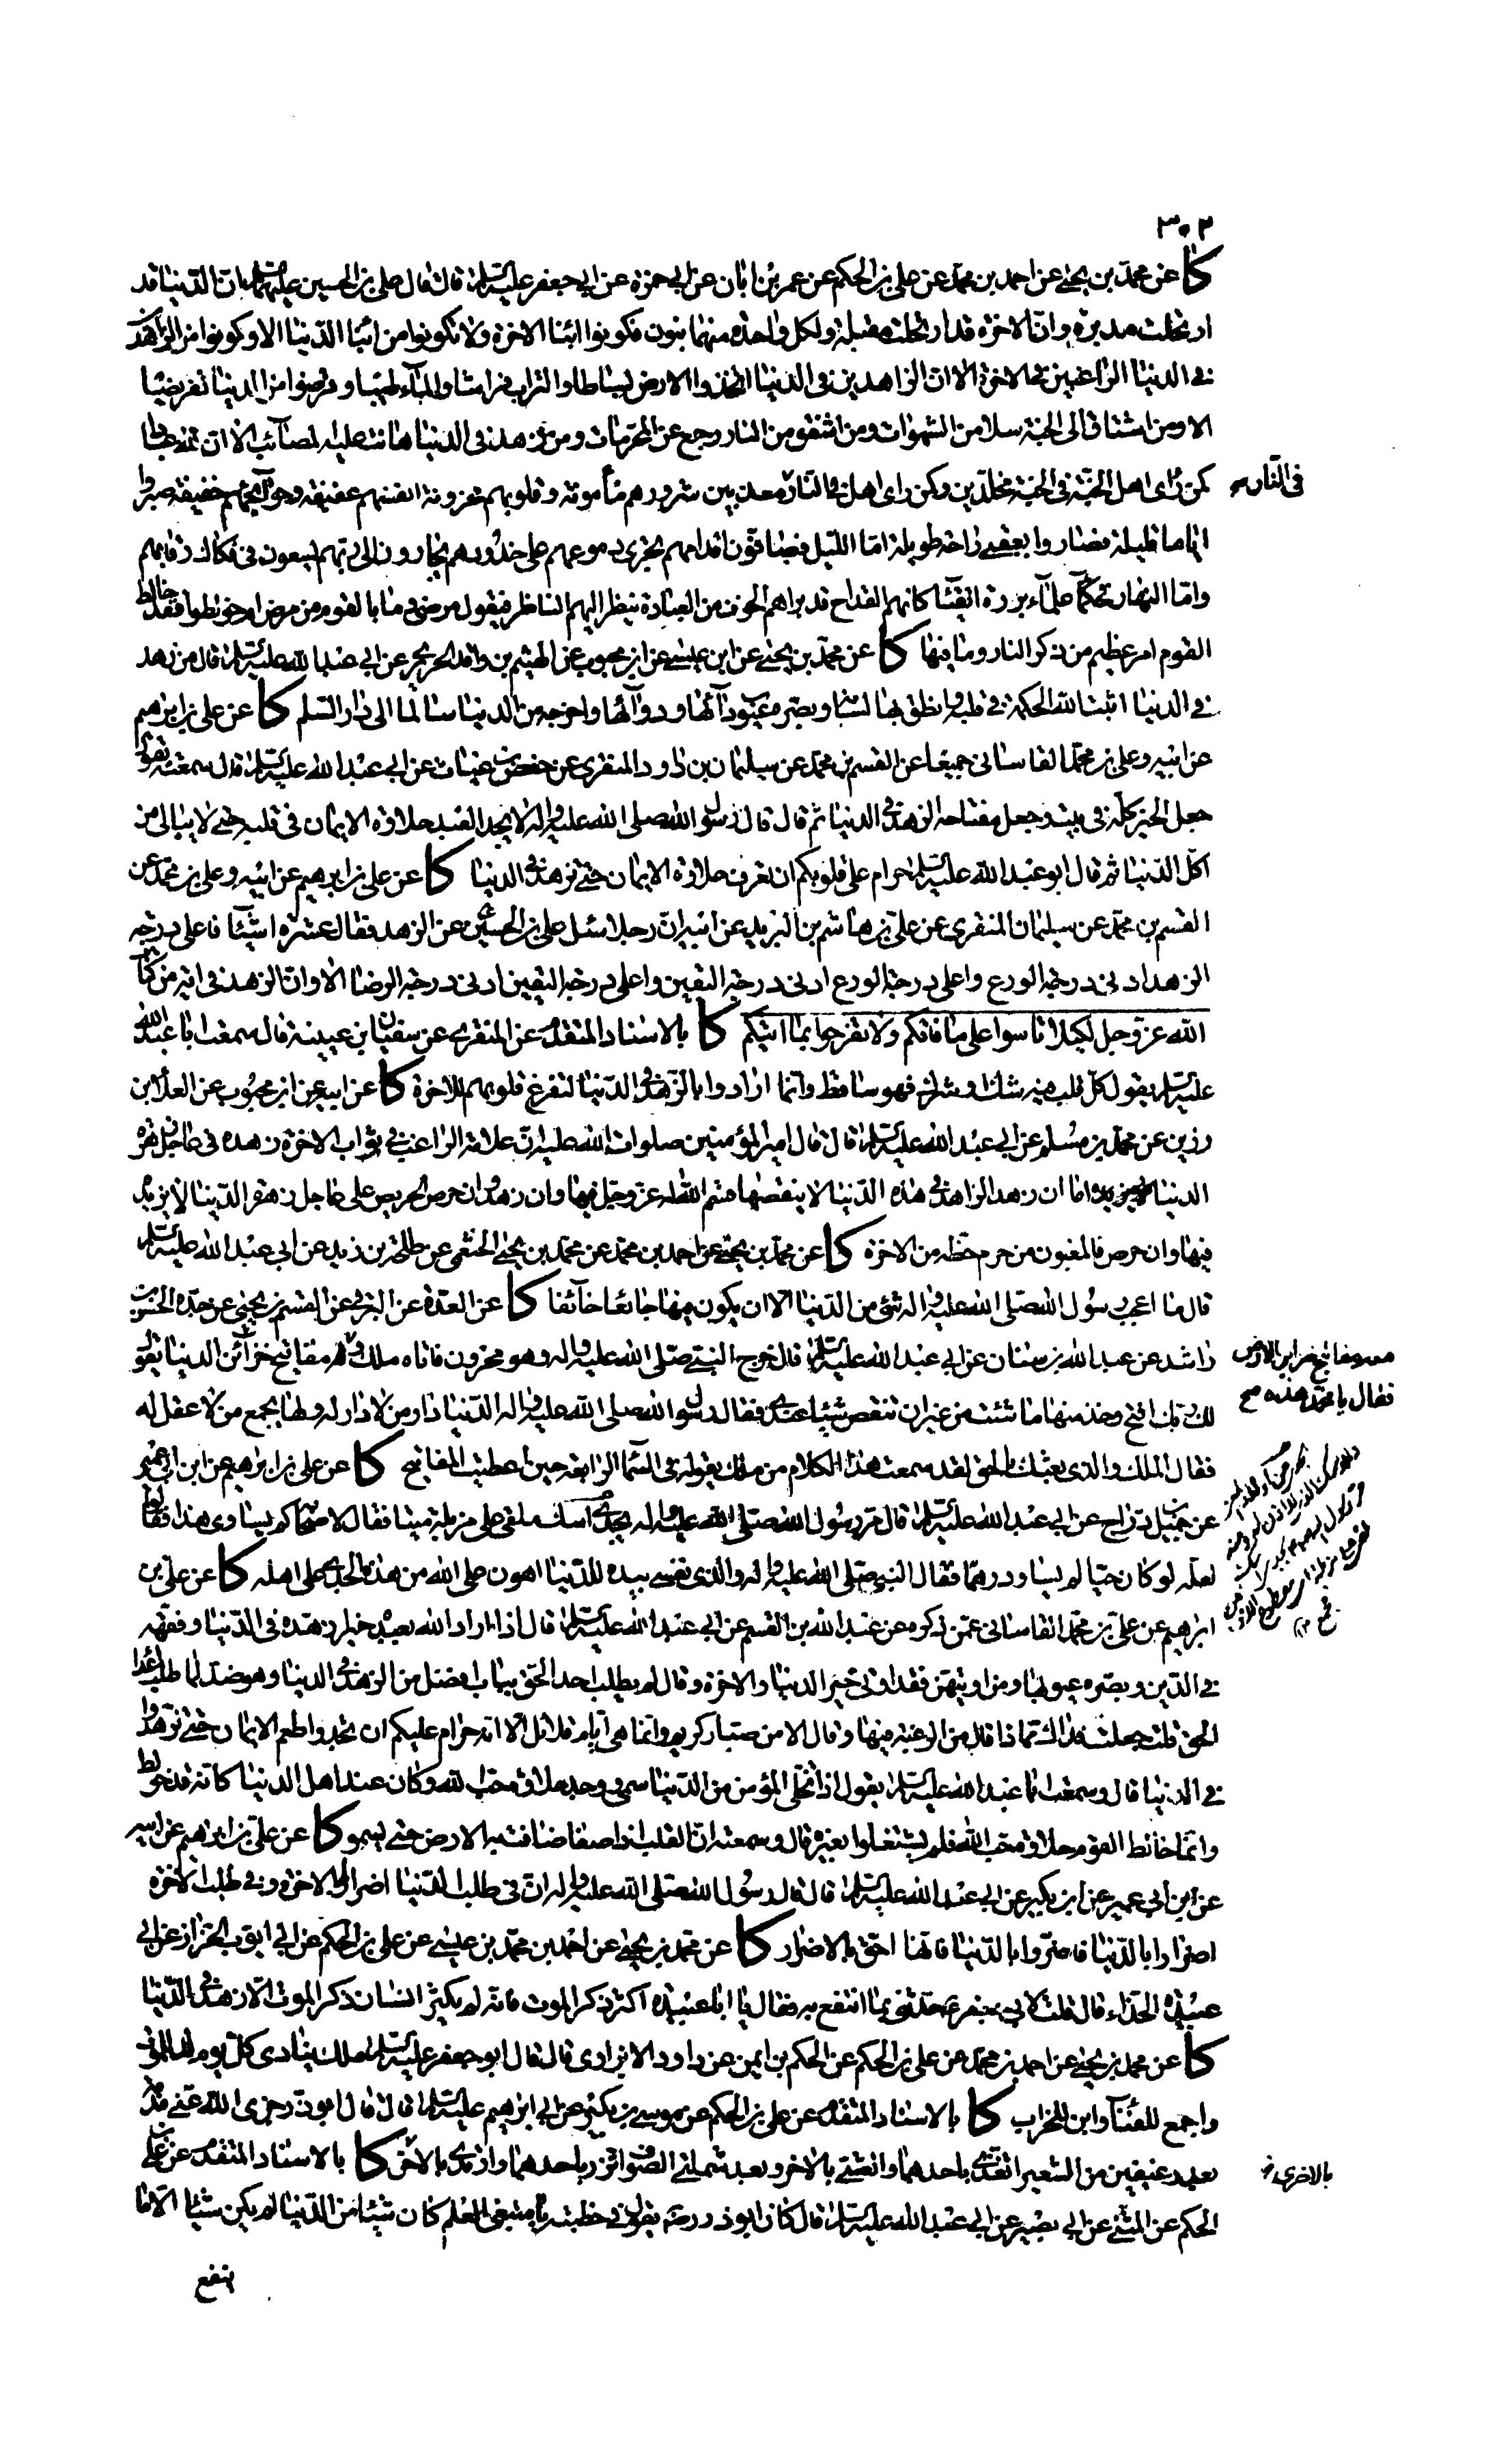 ٣٠٢
كا عن محمد بن يحيى عن احمد بن محمد عن علي بن الحكم عن عمر بن ابان عن ابي حمزة عن ابي جعفر عليه السلم قال قال علي بن الحسين عليهما السلم ان الدنيا قد
ارتحلت مدبرة وان الاخرة قد ارتحلت مقبلة ولكل واحدة منهما بنون فكونوا من ابناء الاخرة ولا تكونوا من ابناء الدنيا الا وكونوا من الزاهدين
في الدنيا الراغبين في الاخرة الا ان الزاهدين في الدنيا اتخذوا الارض بساطا والتراب فراشا والماء طيبا وقرضوا من الدنيا تقريضا
الا ومن اشتاق الى الجنة سلا من الشهوات ومن اشفق من النار رجع عن المحرمات ومن زهد في الدنيا هانت عليه المصائب الا ان لله عبادا
كمن راى اهل الجنة في الجنة مخلدين وكمن راى اهل النار معذبين شرورهم مأمونة وقلوبهم محزونة انفسهم عفيفة وحوائجهم خفيفة صبروا
في النار صح
اياما قليلة فصاروا بعقبى راحة طويلة اما الليل فصافون اقدامهم تجري دموعهم على خدودهم وهم يجارون الى ربهم يسعون في فكاك رقابهم
واما النهار فحكماء علماء بررة اتقياء كانهم القداح قد براهم الخوف من العبادة ينظر اليهم الناظر فيقول مرضى وما بالقوم من مرض ام خولطوا فقد خالط
القوم امر عظيم من ذكر النار وما فيها كا عن محمد بن يحيى عن ابن عيسى عن ابن محبوب عن الهيثم بن واقد الحريري عن ابي عبد الله عليه السلم قال من زهد
في الدنيا اثبت الله الحكمة في قلبه وانطق بها لسانه وبصره عيوب الدنيا داءها ودواءها واخرجه من الدنيا سالما الى دار السلم كا عن علي بن ابرهيم
عن ابيه وعلي بن محمد القاساني جميعا عن القسم بن محمد عن سليمان بن داود المنقري عن حفص بن غياث عن ابي عبد الله عليه السلم قال سمعته يقول
جعل الخير كله في بيت وجعل مفتاحه الزهد في الدنيا ثم قال قال رسول الله صلى الله عليه واله لا يجد العبد حلاوة الايمان في قلبه حتى لا يبالي من
اكل الدنيا ثم قال ابو عبد الله عليه السلم حرام على قلوبكم ان تعرف حلاوة الايمان حتى تزهد في الدنيا كا عن علي بن ابرهيم عن ابيه وعلي بن محمد عن
القسم بن محمد عن سليمان المنقري عن علي بن هاشم بن البريد عن ابيه ان رجلا سئل علي بن الحسين ع عن الزهد فقال عشرة اشياء فاعلى درجة
الزهد ادنى درجة الورع واعلى درجة الورع ادنى درجة اليقين واعلى درجة اليقين ادنى درجة الرضا الا وان الزهد في اية من كتاب
الله عز وجل لكيلا تاسوا على ما فاتكم ولا تفرحوا بما اتيكم كا بالاسناد المتقدم عن المنقري عن سفيان بن عيينة قال سمعت ابا عبد الله
عليه السلم يقول كل قلب فيه شك او شرك فهو ساقط وانما ارادوا بالزهد في الدنيا لتفرغ قلوبهم للاخرة كا عن ابيه عن ابن محبوب عن العلا بن
رزين عن محمد بن مسلم عن ابي عبد الله عليه السلم قال قال امير المؤمنين صلوات الله عليه ان علامة الراغب في ثواب الاخرة زهده في عاجل زهرة
الدنيا اما ان زهد الزاهد في هذه الدنيا لا ينقصه مما قسم الله له عز وجل فيها وان زهد وان حرص الحريص على عاجل زهرة الدنيا لا يزيده
فيها وان حرص فالمغبون من حرم حظه من الاخرة كا عن محمد بن يحيى عن احمد بن محمد عن محمد بن يحيى الخثعمي عن طلحة بن زيد عن ابي عبد الله عليه السلم
قال ما اعجب رسول الله صلى الله عليه واله شئ من الدنيا الا ان يكون فيها جائعا خائفا كا عن العدة عن البرقي عن القسم بن يحيى عن جده الحسن بن
راشد عن عبد الله بن سنان عن ابي عبد الله عليه السلم قال خرج النبي صلى الله عليه واله وهو محزون فاتاه ملك ومعه مفاتيح خزائن الدنيا يقول
معه مفاتيح خزاين الارض
فقال يا محمد هذه صح
لك ربك افتح وخذ منها ما شئت من غير ان تنقص شيئا عندي فقال رسول الله صلى الله عليه واله الدنيا دار من لا دار له ولها يجمع من لا عقل له
فقال الملك والذي بعثك بالحق لقد سمعت هذا الكلام من ملك يقوله في السماء الرابعة حين اعطيت المفاتيح كا عن علي بن ابراهيم عن ابن ابي عمير
عن جميل بن دراج عن ابي عبد الله عليه السلم قال مر رسول الله صلى الله عليه واله بجدي اسك ملقى على مزبلة ميتا فقال لاصحابه كم يساوي هذا فقالوا
لعله لو كان حيا لم يساو درهما فقال النبي صلى الله عليه واله والذي نفسي بيده للدنيا اهون على الله من هذا الجدي على اهله كا عن علي بن
ابرهيم عن علي بن محمد القاساني عمن ذكره عن عبد الله بن القسم عن ابي عبد الله عليه السلم قال اذا اراد الله بعبد خيرا زهده في الدنيا وفقهه
في الدين وبصره عيوبها ومن اوتيهن فقد اوتي خير الدنيا والاخرة وقال لم يطلب احد الحق بباب افضل من الزهد في الدنيا وهو ضد لما طلب اعداء
الحق قلت جعلت فداك مما ذا قال من الرغبة فيها وقال الا من صبار كريم وانما هي ايام قلائل الا انه حرام عليكم ان تجدوا طعم الايمان حتى تزهدوا
في الدنيا قال وسمعت ابا عبد الله عليه السلم يقول اذا تخلى المؤمن من الدنيا سمى ووجد حلاوة محب الله وكان عند اهل الدنيا كانه قد خولط
وانما خالط القوم حلاوة محب الله فلم يشتغلوا بغيره قال وسمعته ان القلب اذا صفا ضاقت به الارض حتى يسمو كا عن علي بن ابراهيم عن ابيه
عن ابن ابي عمير عن ابن بكير عن ابي عبد الله عليه السلم قال قال رسول الله صلى الله عليه واله ان في طلب الدنيا اضرارا بالاخرة وفي طلب الاخرة
اضرارا بالدنيا فاضروا بالدنيا فانها احق بالاضرار كا عن محمد بن يحيى عن احمد بن محمد بن عيسى عن علي بن الحكم عن ابي ايوب الخزاز عن ابي
عبيدة الحذاء قال قلت لابي جعفر ع حدثني بما انتفع به فقال يا ابا عبيدة اكثر ذكر الموت فانه لم يكثر انسان ذكر الموت الا زهد في الدنيا
كا عن محمد بن يحيى عن احمد بن محمد عن علي بن الحكم عن الحكم بن ايمن عن داود الابزاري قال قال ابو جعفر عليه السلم ملك ينادي كل يوم لد للموت
واجمع للفناء وابن للخراب كا بالاسناد المتقدم عن علي بن الحكم عن موسى بن بكير عن ابي ابرهيم عليه السلم قال قال ابو ذر جزى الله عني مذمة
بعد رغيفين من الشعير اتغدى باحدهما واتعشى بالاخر وبعد شملتي الصوف اتزر باحدهما وارتدي بالاخر كا بالاسناد المتقدم عن علي بن
بالاخرى
الحكم عن المثنى عن ابي بصير عن ابي عبد الله عليه السلم قال كان ابو ذر رضه يقول في خطبته يا مبتغي العلم كان شيئا من الدنيا لم يكن شيئا الا ما
ينفع